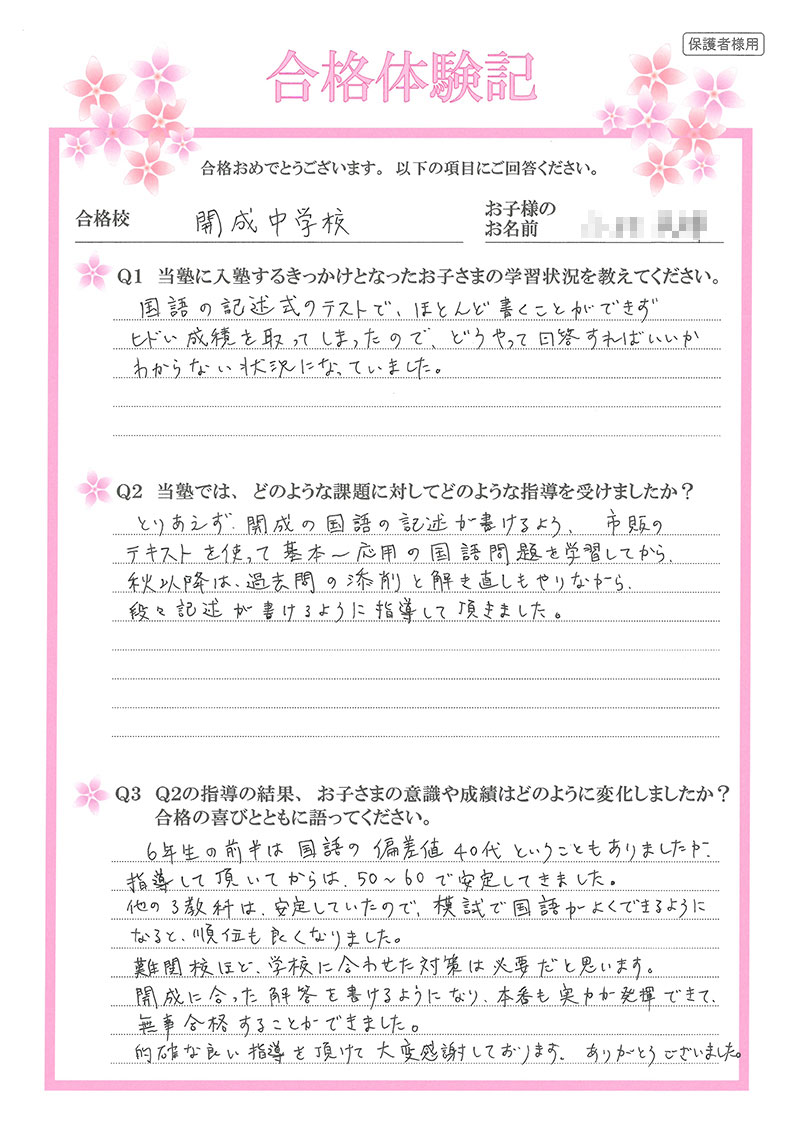 保護者様用
合格体験記
合格おめでとうございます。以下の項目にご回答ください。
合格校 開成中学校
お子様の
お名前
Q1 当塾に入塾するきっかけとなったお子さまの学習状況を教えてください。
国語の記述式のテストで、ほとんど書くことができず
ヒドい成績を取ってしまったので、どうやって回答すればいいか
わからない状況になっていました。
Q2 当塾では、どのような課題に対してどのような指導を受けましたか？
とりあえず、開成の国語の記述が書けるよう、市販の
テキストを使って基本～応用の国語問題を学習してから、
秋以降は、過去問の添削と解き直しもやりながら、
段々記述が書けるように指導して頂きました。
Q3 Q2の指導の結果、お子さまの意識や成績はどのように変化しましたか？
合格の喜びとともに語ってください。
6年生の前半は国語の偏差値40代ということもありましたが、
指導して頂いてからは、50～60で安定してきました。
他の3教科は、安定していたので、模試で国語がよくできるように
なると、順位も良くなりました。
難関校ほど、学校に合わせた対策は必要だと思います。
開成に合った解答を書けるようになり、本番も実力が発揮できて、
無事合格することができました。
的確な良い指導を頂けて大変感謝しております。ありがとうございました。